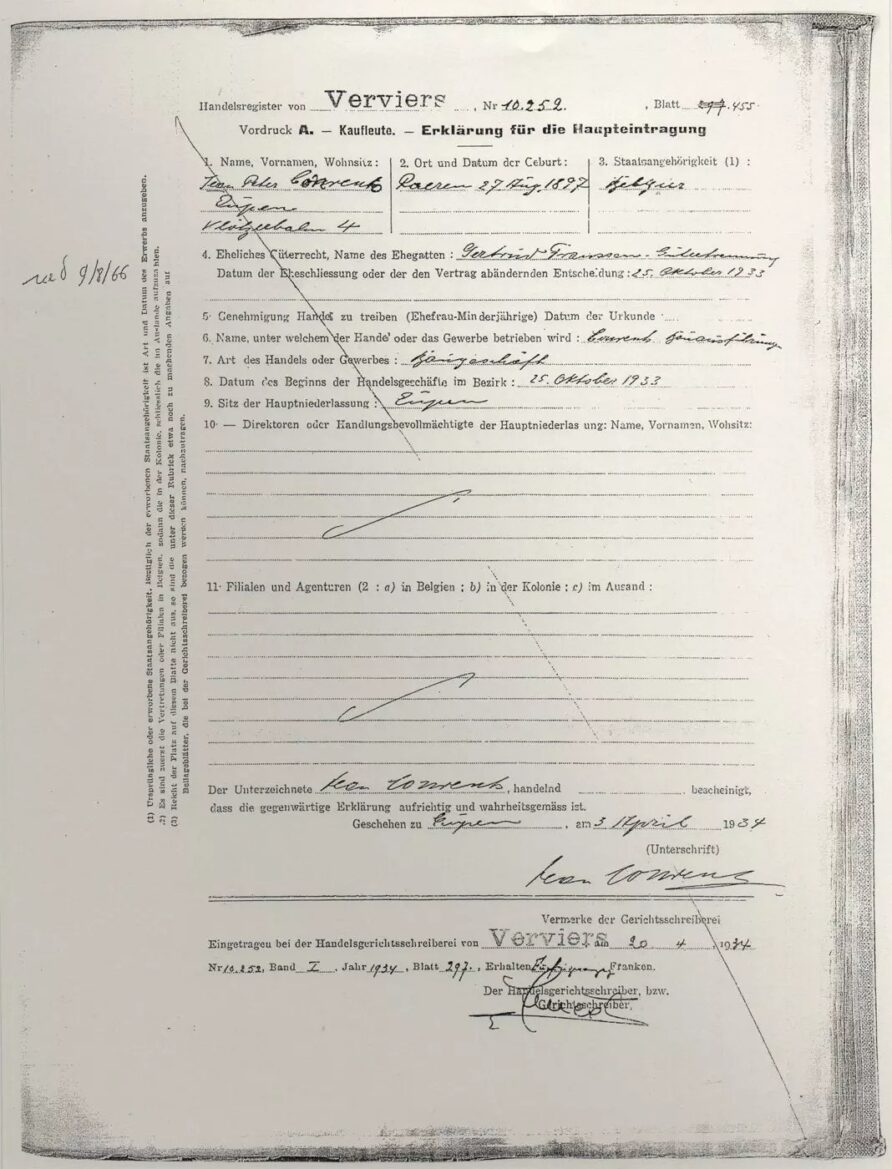 Handelsregister von Verviers, Nr 10.252. , Blatt 297. 455.
Vordruck A. — Kaufleute. — Erklärung für die Haupteintragung
1. Name, Vornamen, Wohnsitz :
Jean Peter Conrents
Eupen
4
2. Ort und Datum der Geburt :
Raeren 27 Aug. 1897
3. Staatsangehörigkeit (1) :
Belgier
4. Eheliches Güterrecht, Name des Ehegatten : Gertrud Franssen - Gütertrennung
Datum der Eheschliessung oder der den Vertrag abändernden Entscheidung : 25. Oktober 1933
5. Genehmigung Handel zu treiben (Ehefrau-Minderjährige) Datum der Urkunde
6. Name, unter welchem der Handel oder das Gewerbe betrieben wird : Conrents Bauausführung
7. Art des Handels oder Gewerbes : Baugeschäft
8. Datum des Beginns der Handelsgeschäfte im Bezirk : 25. Oktober 1933
9. Sitz der Hauptniederlassung : Eupen
10. — Direktoren oder Handlungsbevollmächtigte der Hauptniederlas ung: Name, Vornamen, Wohsitz:
11. Filialen und Agenturen (2 : a) in Belgien ; b) in der Kolonie ; c) im Ausand :
Der Unterzeichnete Jean Conrents, handelnd bescheinigt,
dass die gegenwärtige Erklärung aufrichtig und wahrheitsgemäss ist.
Geschehen zu Eupen , am 3 April 1934
(Unterschrift)
Jean Conrents
Vermerke der Gerichtsschreiberei
Eingetragen bei der Handelsgerichtsschreiberei von Verviers am 20 4 1934
Nr 10.252, Band I , Jahr 1934 , Blatt 297. , Erhalten Franken.
Der Handelsgerichtsschreiber, bzw.
Gerichtsschreiber,
rad 9/8/66
(1) Ursprüngliche oder erworbene Staatsangehörigkeit. Bezüglich der erworbenen Staatsangehörigkeit ist Art und Datum des Erwerbs anzugeben.
(2) Es sind zuerst die Vertretungen oder Filialen in Belgien, sodann die in der Kolonie, schliesslich die im Auslande aufzuzählen.
(3) Reicht der Platz auf diesem Blatte nicht aus, so sind die unter dieser Rubrick etwa noch zu machenden Angaben auf
Beilageblätter, die bei der Gerichtsschreiberei bezogen werden können, nachzutragen.